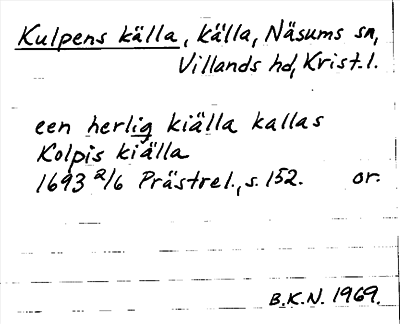 Kulpens källa, källa, Näsums sn,
Villands hd, Krist. l.
een herlig kiälla kallas
Kolpis kiälla
1693 2/6 Prästrel., s. 152. or.
B.K.N. 1969.